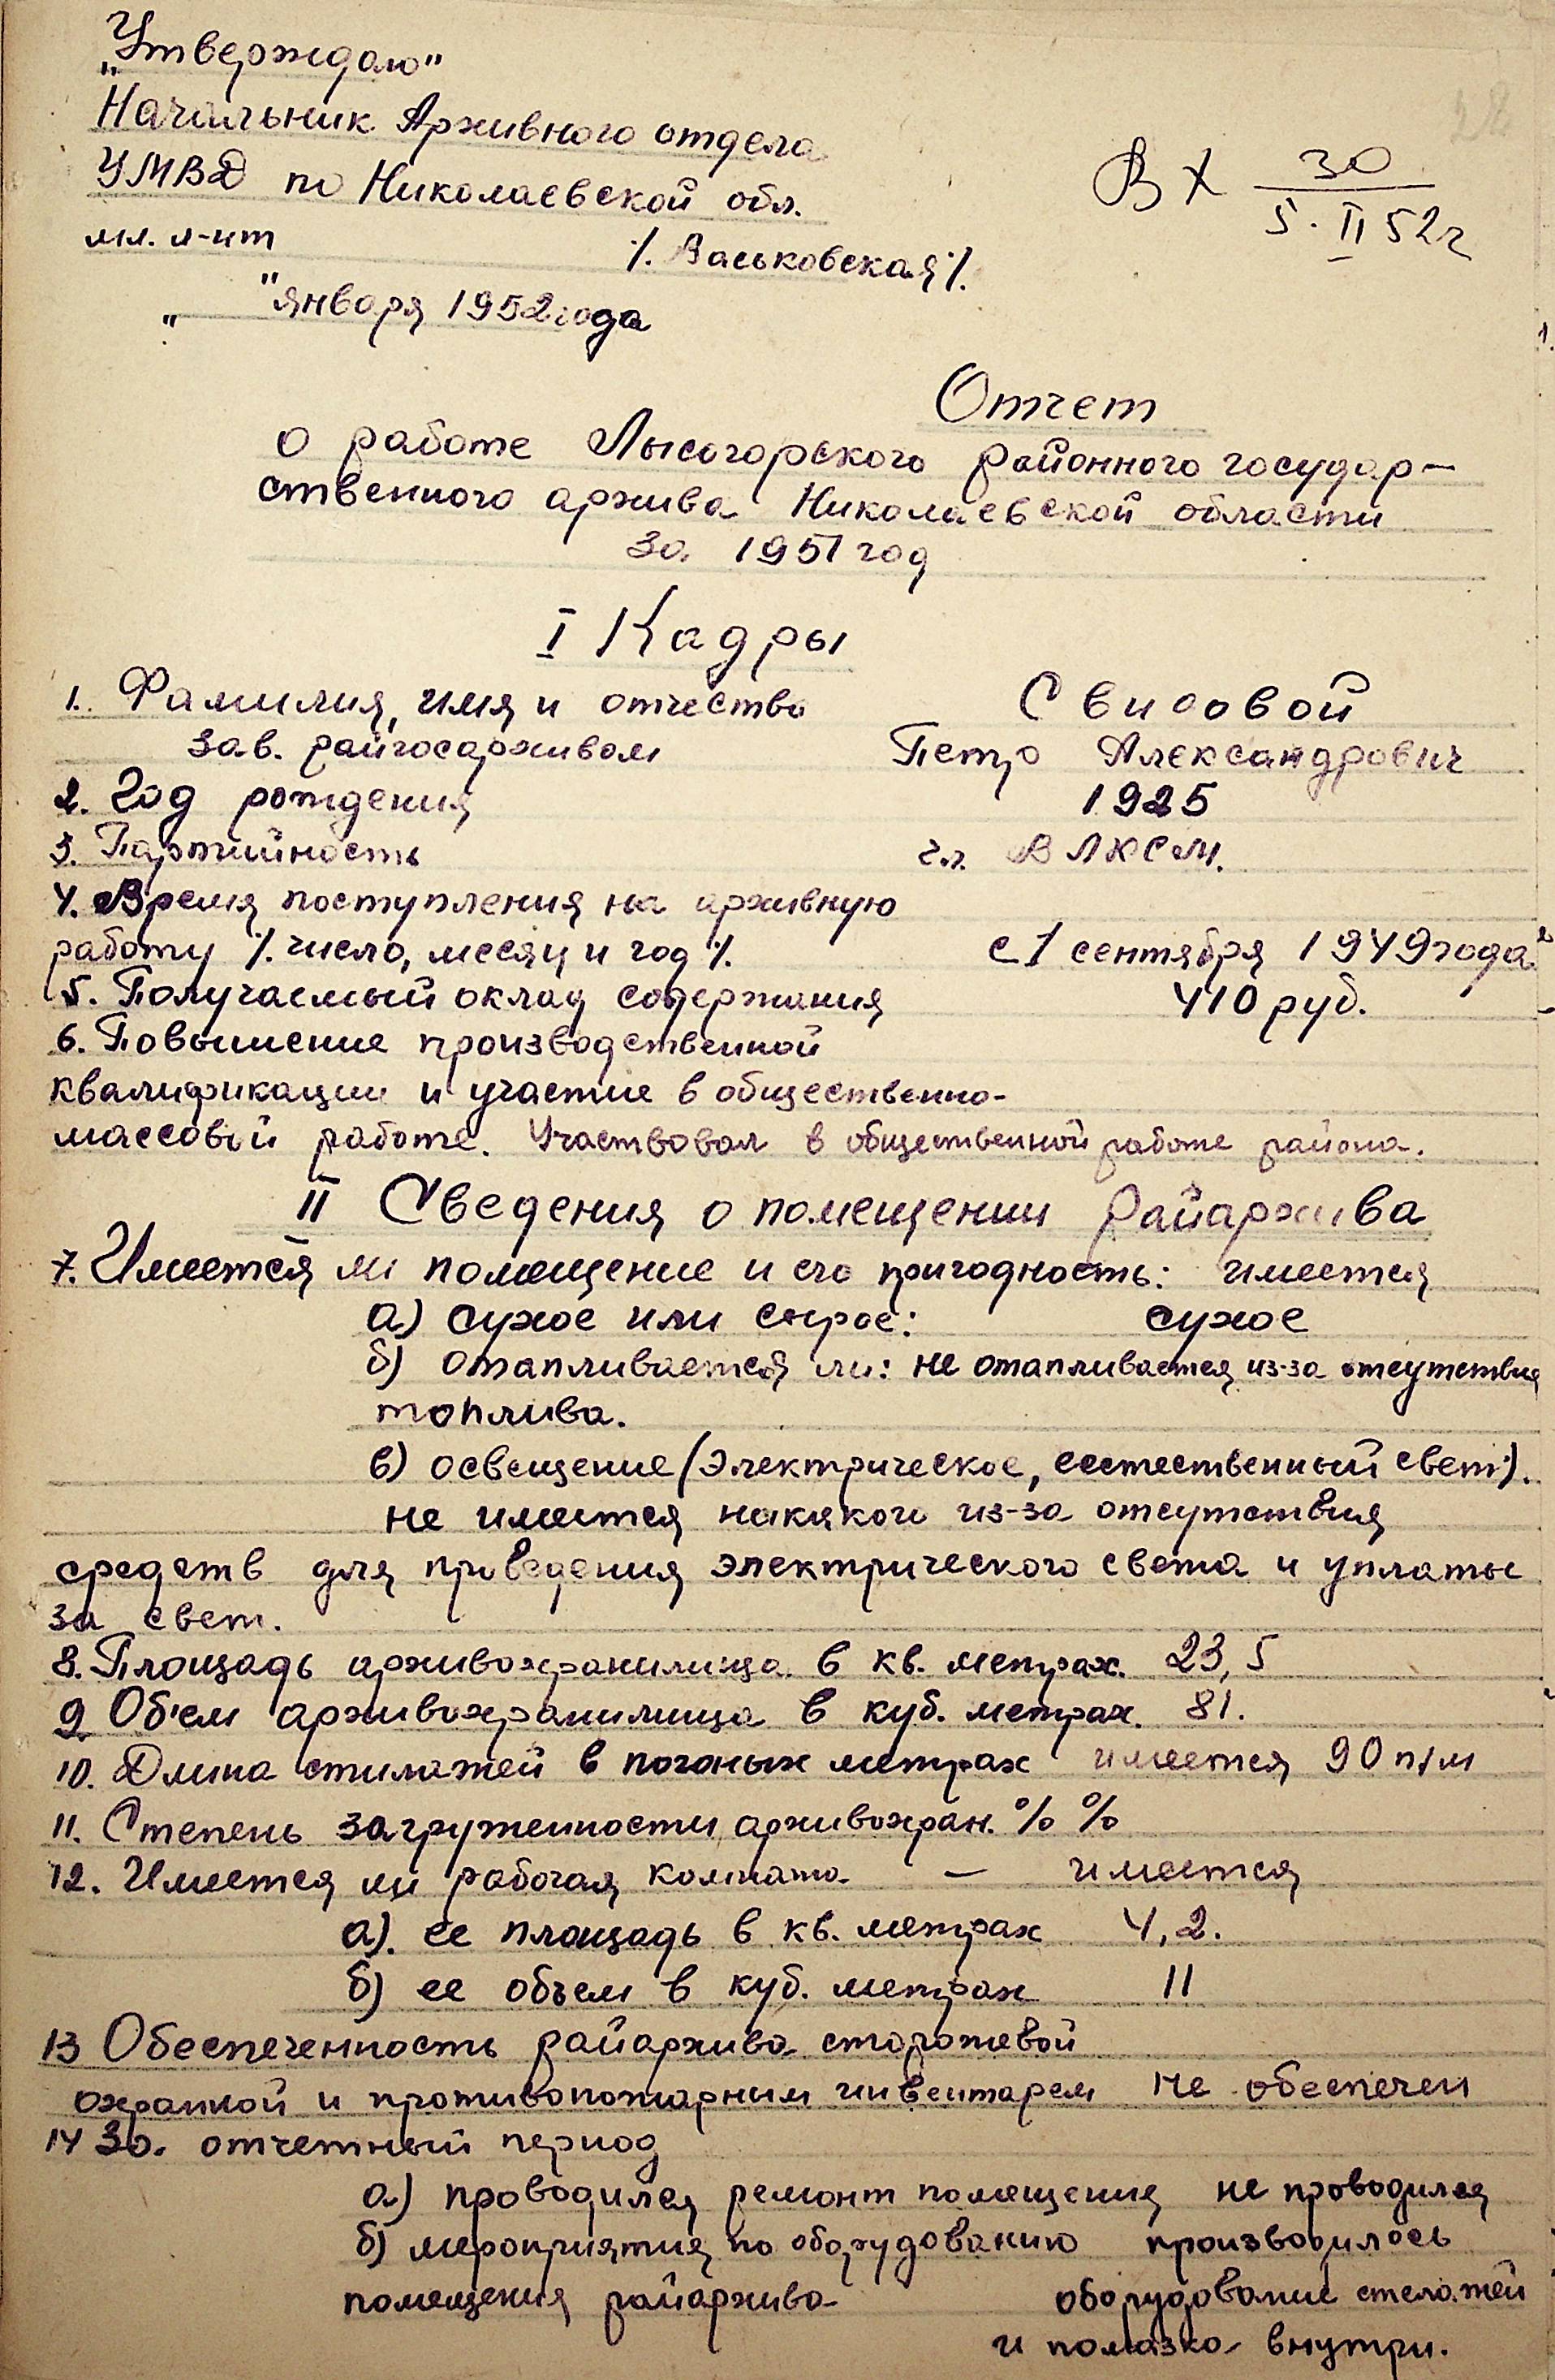 „Утверждаю"
Начальник Архивного отдела
УМВД по Николаевской обл.
мл. л-нт
/. Васьковская /.
„ " января 1952 года
Вх 30
5. II 52 г
Отчет
о работе Лысогорского районного государ-
ственного архива Николаевской области
за 1951 год
I Кадры
1. Фамилия, имя и отчество
зав. райгосархивом
Петр Александрович
2. Год рождения 1925
3. Партийность чл. ВЛКСМ.
4. Время поступления на архивную
работу /. число, месяц и год /. с 1 сентября 1949 года
5. Получаемый оклад содержания 410 руб.
6. Повышение производственной
квалификации и участие в общественно-
массовой работе. Участвовал в общественной работе района.
II Сведения о помещении Райархива
7. Имеется ли помещение и его пригодность: имеется
а) сухое или сырое: сухое
б) отапливается ли: не отапливается из-за отсутствия
топлива.
в) освещение (электрическое, естественный свет).
не имеется никакого из-за отсутствия
средств для проведения электрического света и уплаты
за свет.
8. Площадь архивохранилища в кв. метрах. 23,5
9 Об'ем архивохранилища в куб. метрах. 81.
10. Длина стилажей в погоных метрах имеется 90 п/м
11. Степень загруженности архивохран. % %
12. Имеется ли рабочая комната - имеется
а). ее площадь в кв. метрах 4,2.
б) ее объем в куб. метрах 11
13 Обеспеченность райархива сторожевой
охраной и противопожарным инвентарем не обеспечен
14 За отчетный период
а) проводился ремонт помещения не проводился
б) мероприятия по оборудованию производилось
помещения райархива оборудование стелажей
и помазка внутри.